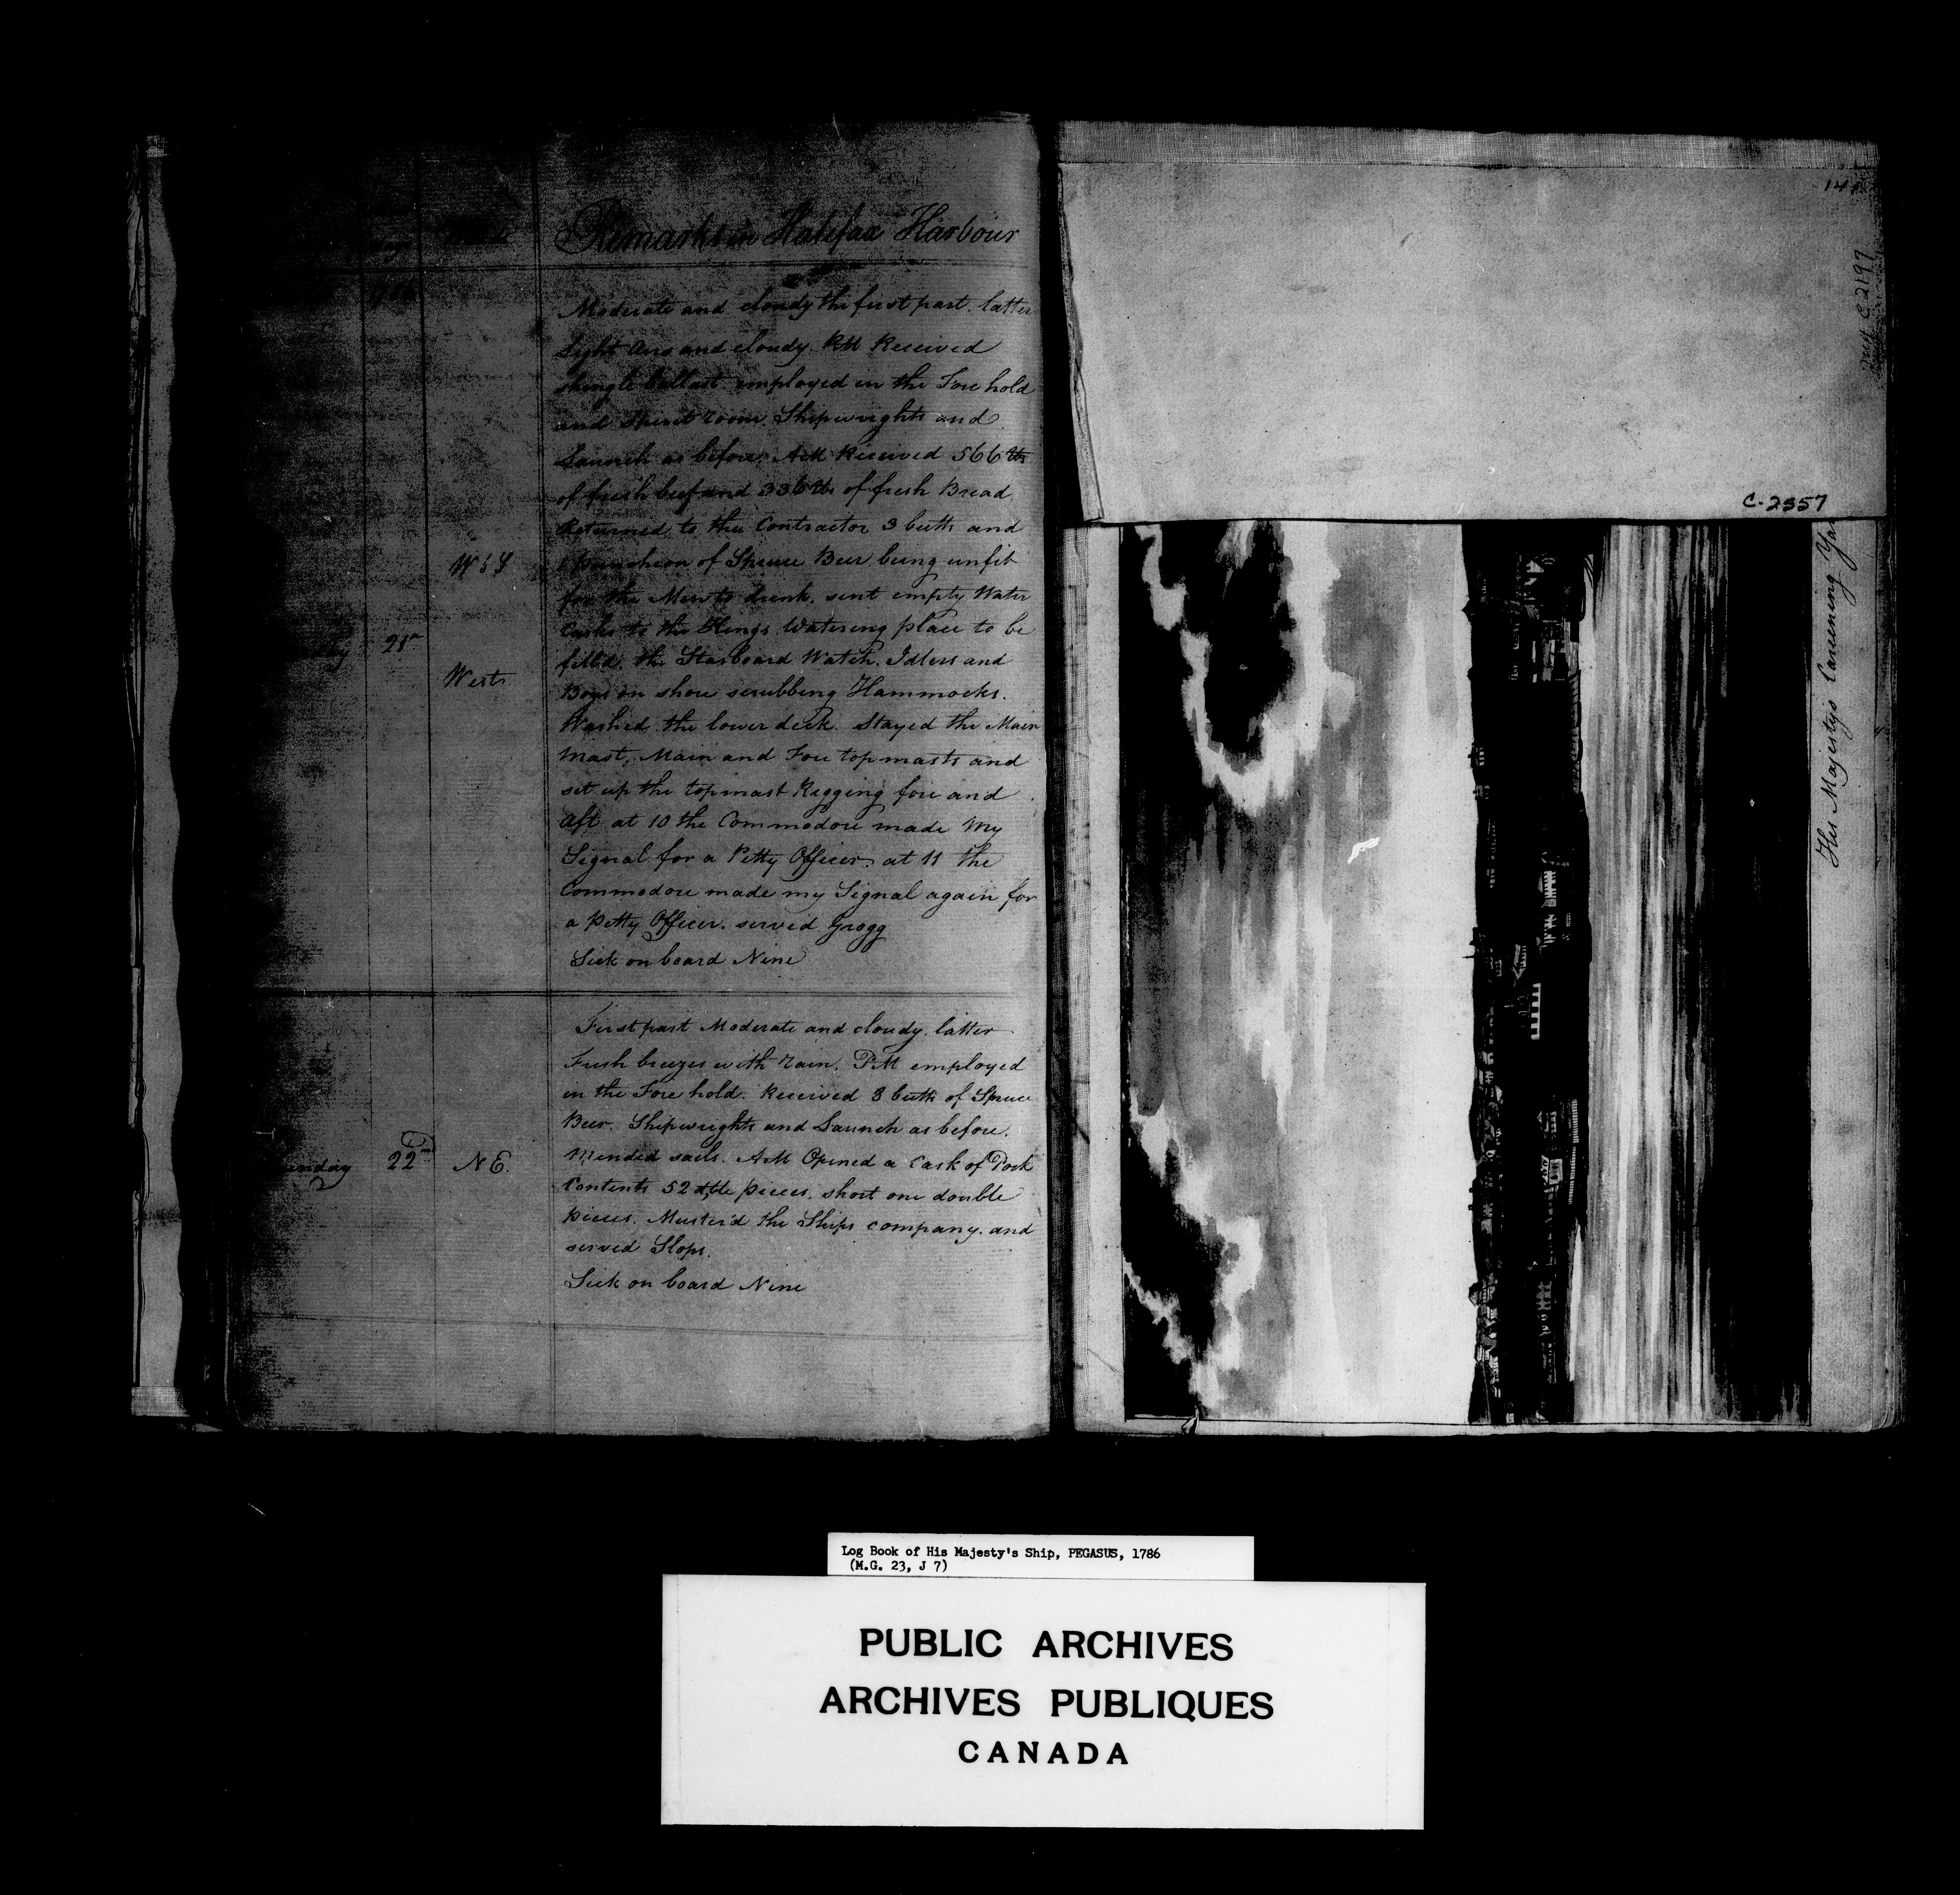 Remarks in Halifax Harbour
1786
Moderate and cloudy the first part. latter
Light Airs and cloudy. PM Received
shingle ballast employed in the Fore hold
and Spirit room. Shipwrights and
Launch as before. AM Received 566 lbs
of fresh beef and 336 lbs of fresh Bread
Returned to the Contractor 3 butts and
Puncheon of Spruce Beer being unfit
for the Men to drink. sent empty Water
Casks to the Kings Watering place to be
fill'd. the Starboard Watch. Idlers and
Boys on shore scrubbing Hammocks.
Washed the lower deck. Stayed the Main
Mast, Main and Fore topmasts and
set up the topmast Rigging fore and
aft at 10 the Commodore made My
Signal for a Petty Officer. at 11 the
Commodore made my Signal again for
a Petty Officer. served Grogg
Sick on board Nine
West
First part Moderate and cloudy. latter
Fresh breezes with rain. PM employed
in the Fore hold. Received 3 butts of Spruce
Beer. Shipwrights and Launch as before.
Mended sails. AM Opened a Cask of Pork
Contents 52 dble pieces. short one double
pieces. Muster'd the Ships company. and
served Slops.
Sick on board Nine
22nd
N E.
C-2557
His Majestys Careening Yar
Log Book of His Majesty's Ship, PEGASUS, 1786
(M.G. 23, J 7)
PUBLIC ARCHIVES
ARCHIVES PUBLIQUES
CANADA